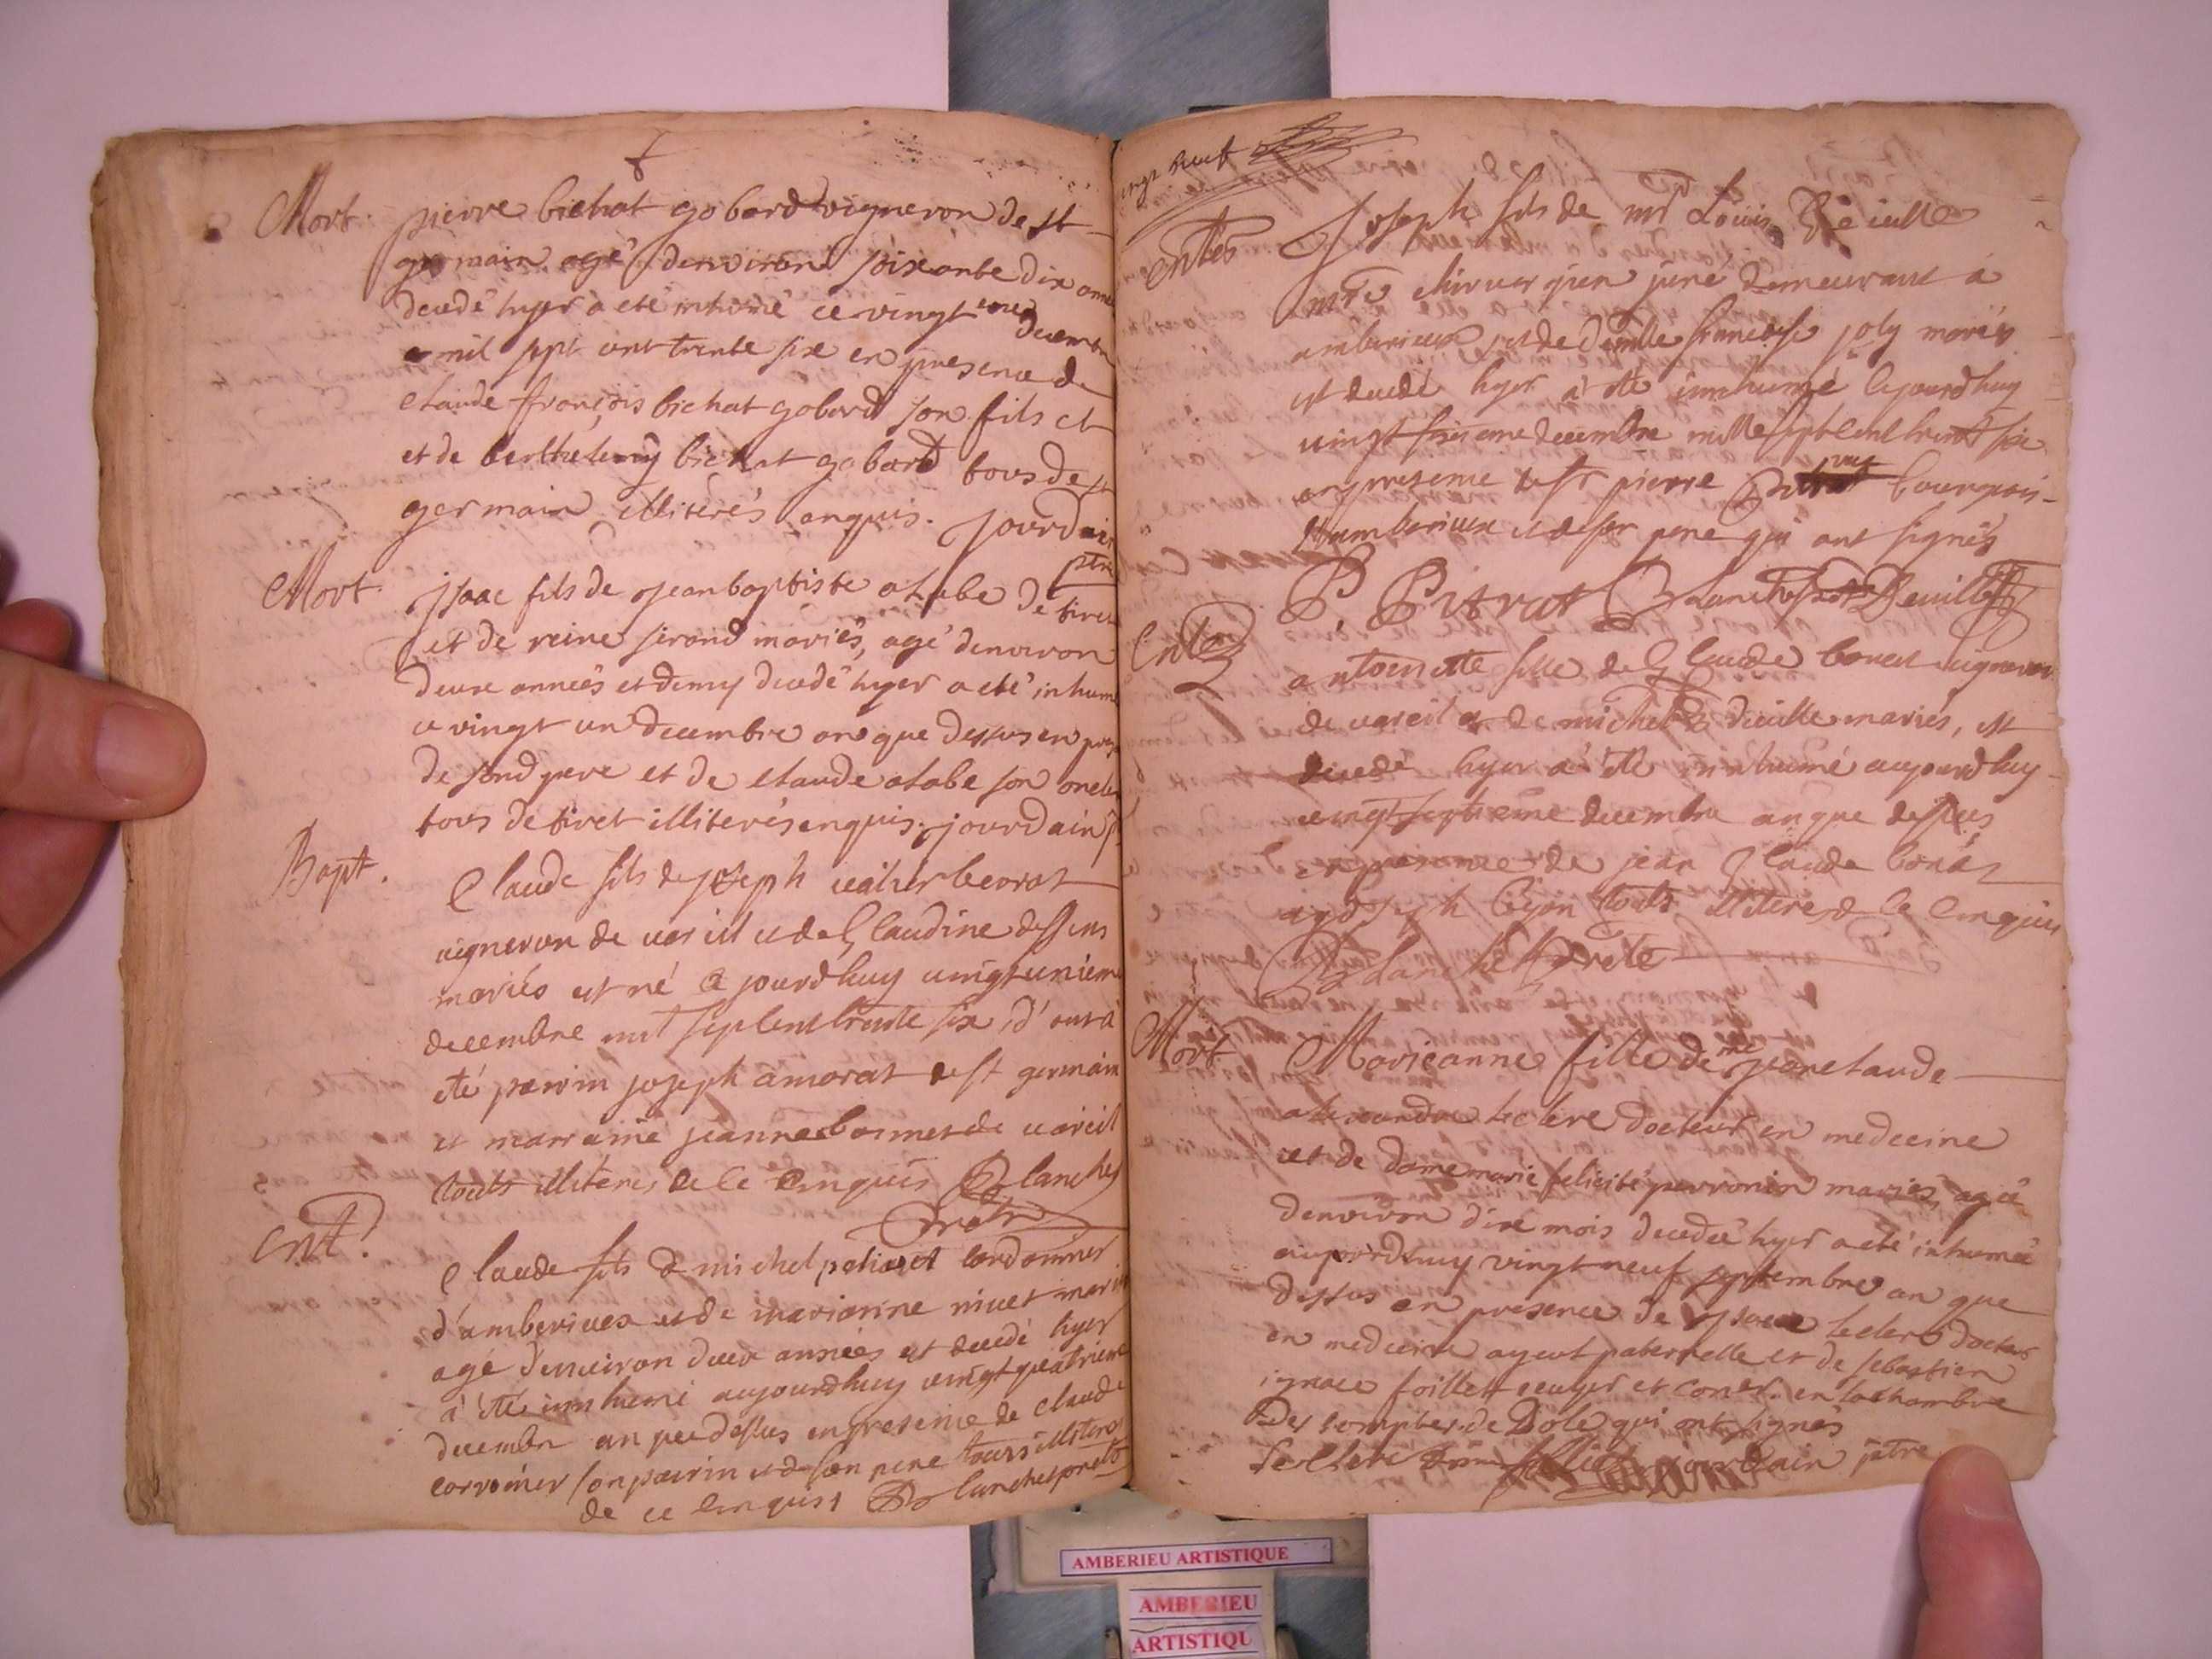 Mort. pierre bichat gobard vigneron de st
germain agé denviron soixante dix ans
decedé hyer a eté inhumé ce vingt decembre
mil sept cent trente six en presence de
claude françois bichat gobard son fils et
et de berthelemy bichat gobard tous de st
germain illiterés enquis. jourdain
ptre
Mort. jsaac fils de jean baptiste alabe de tiret
et de reine sirand mariés, agé denviron
deux années et demy decedé hyer a eté inhumé
ce vingt un decembre an que dessus en
de sond pere et de claude alabe son oncle
tous de tiret illiterés enquis. jourdain
Bapt. Claude fils de joseph
vigneron de vareil et de Claudine dessens
mariés est né ce jourdhuy vingtunieme
decembre mil sept cent trente six, et a
eté parrin joseph amorat de st germain
et marraine jeanne bonnet de vareil
touts illiteres de ce enquis Blanchet
pretre
Ent. Claude fils de michel cordonnier
d'amberieux et de marianne nivet mariés
agé d'environ deux années est decedé hyer
a eté innhumé aujourdhuy vingt quatrieme
decembre an que dessus en presence de claude
son parrin et de son pere touts illiteres
de ce enquis Blanchet pretre
vingt neuf
Ent. Joseph fils de mr Louis
mre chirurgien juré demeurant à
amberieux et de demlle francoise joly mariés
est decedé hyer a eté innhumé cejourdhuy
decembre mille sept cent trente six
en presence de sr pierre bourgeois
d'amberieux et de son pere qui ont signés
P. Pitrat Blanchet
Ent. antoinette fille de Claude bonet vigneron
de vareil et de michelle mariés, est
decedé hyer a eté innhumé aujourdhuy
vingt septieme decembre an que dessus
en presence de jean Claude
joseph touts illiteres de ce enquis
Blanchet pretre
Mort. Marieanne fille de mre jean claude
alexandre leclerc docteur en medecine
et de dame marie felicité perronin mariés, agée
denviron dix mois decedée hyer a eté inhumée
aujourdhuy vingt neuf septembre an que
dessus en presence de leclerc docteur
en medecine ayeut paternelle et de sebastien
ignace foillet ecuyer et conser. en la chambre
des comptes de Dole qui ont signés
leclerc jourdain ptre
AMBERIEU ARTISTIQUE
AMBERIEU
ARTISTIQU